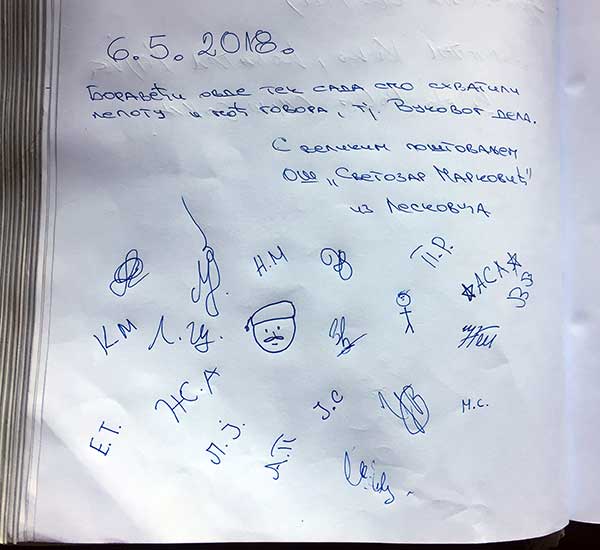 6.5.2018.
Боравећи овде тек сада смо схватили
лепоту и моћ говора, тј. Вуковог дела.
С великим поштовањем
ОШ „Светозар Марковић"
из Лесковца
Н.М
П.Р.
АСА
КМ Л.
Ж.С.А Ј.С М.С.
Е.Т. Л.Ј. А.П